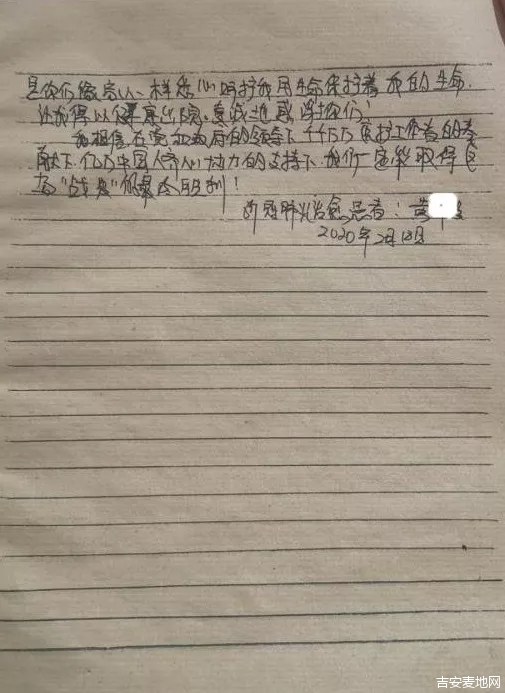 是你们像亲人一样悉心呵护我用生命保护着我的生命.
让我得以健康出院.真诚地感谢你们!
我相信在党和政府的领导下千千万万医护工作者的奉
献下.亿万中国人齐心协力的支持下.我们一定能取得这
场"战疫"的最后胜利!
新冠肺炎治愈患者:黄
2020年2月18日
吉安麦地网